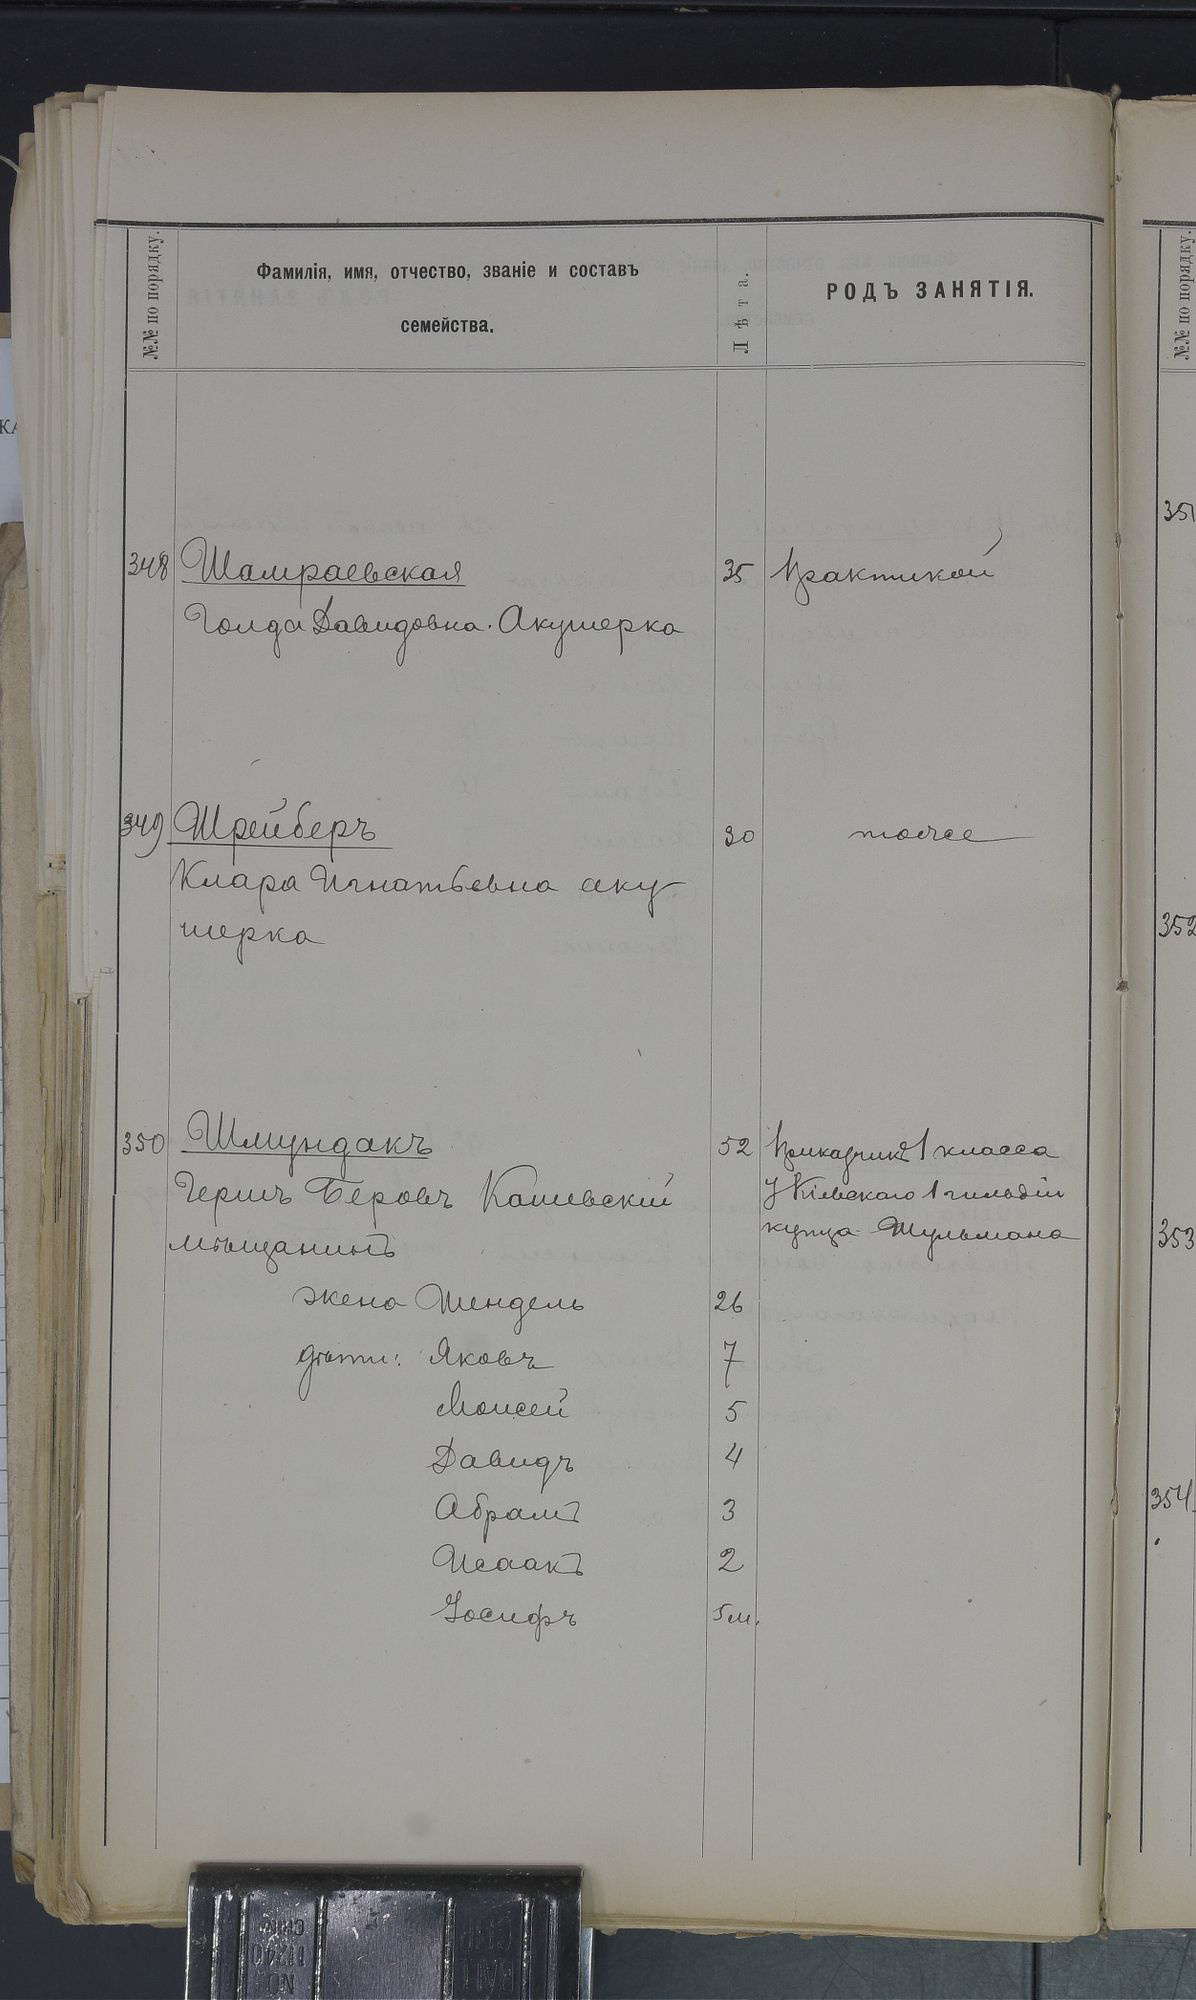 №№ по порядку.
Фамилія, имя, отчество, званіе и составъ
семейства.
Лѣта.
РОДЪ ЗАНЯТІЯ.
348 Шамраевская 35 практикой
Голда Давидовна. Акушерка
349 Шрейберъ 30 тоже
Клара Игнатьевна аку-
шерка
350 Шмундакъ 52 Приказчикъ 1 класса
Гершъ Беровъ Каневскій у Кіевскаго 1 гильдіи
мѣщанинъ купца Шульмана
жена Шендель 26
дѣти: Яковъ 7
Моисей 5
Давидъ 4
Абрамъ 3
Исаакъ 2
Іосифъ 5 м.
№№ по порядку.
351
352
353
354